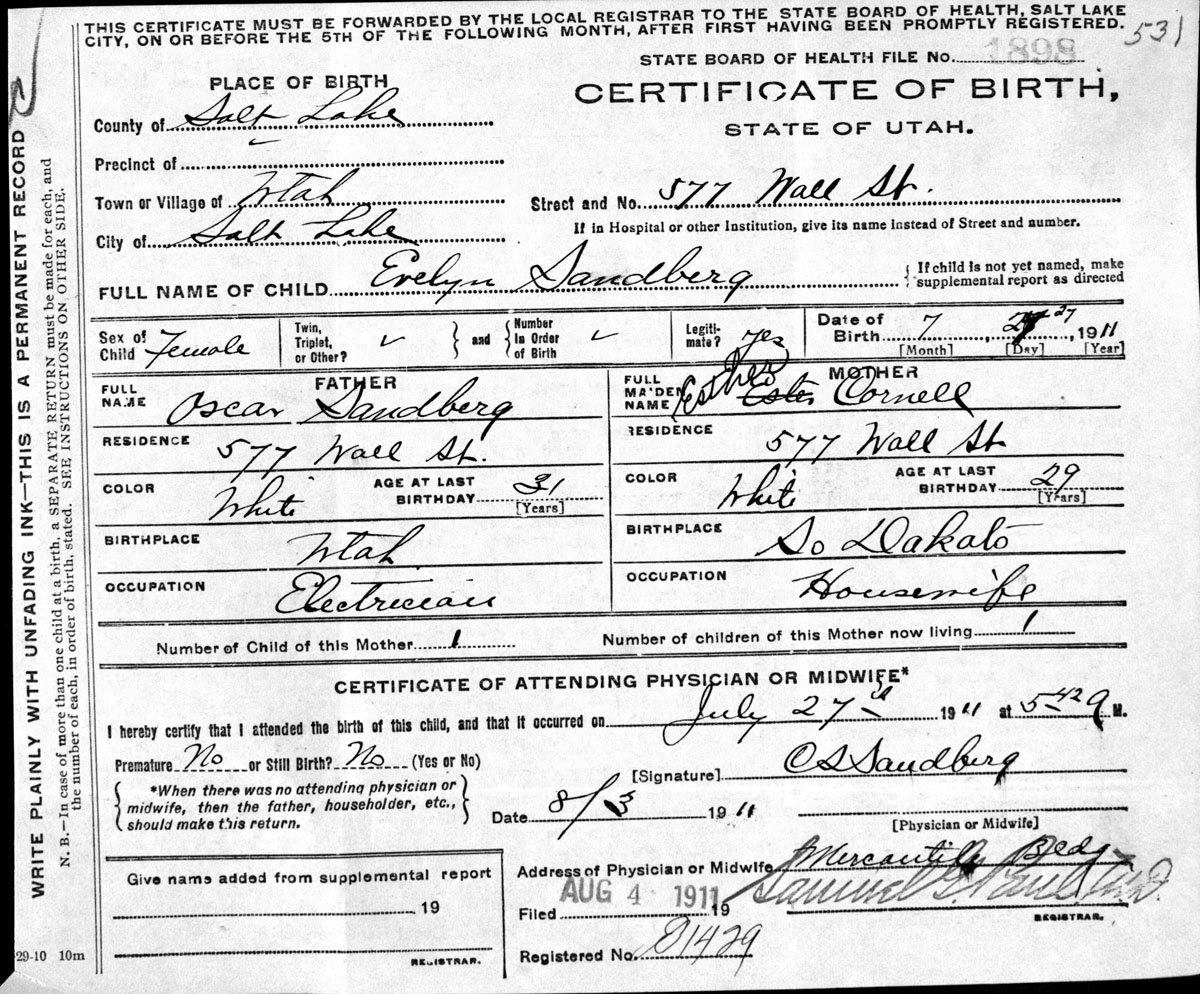 THIS CERTIFICATE MUST BE FORWARDED BY THE LOCAL REGISTRAR TO THE STATE BOARD OF HEALTH, SALT LAKE
CITY, ON OR BEFORE THE 5TH OF THE FOLLOWING MONTH, AFTER FIRST HAVING BEEN PROMPTLY REGISTERED.
531
STATE BOARD OF HEALTH FILE No. 1898
PLACE OF BIRTH
CERTIFICATE OF BIRTH,
STATE OF UTAH.
County of Salt Lake
Precinct of
Town or Village of Utah
Street and No. 577 Wall St.
City of Salt Lake
If in Hospital or other Institution, give its name instead of Street and number.
FULL NAME OF CHILD Evelyn Sandberg
If child is not yet named, make
supplemental report as directed
Sex of Child Female
Twin, Triplet, or Other?
and
Number in Order of Birth
Legiti-mate? yes
Date of Birth 7, 27, 1911
[Month] [Day] [Year]
FATHER
FULL NAME Oscar Sandberg
RESIDENCE 577 Wall St.
COLOR White
AGE AT LAST BIRTHDAY 31
[Years]
BIRTHPLACE Utah
OCCUPATION Electrician
MOTHER
FULL MAIDEN NAME Esther Ester Cornell
RESIDENCE 577 Wall St
COLOR White
AGE AT LAST BIRTHDAY 29
[Years]
BIRTHPLACE So Dakato
OCCUPATION Housewife
Number of Child of this Mother 1
Number of children of this Mother now living 1
CERTIFICATE OF ATTENDING PHYSICIAN OR MIDWIFE*
I hereby certify that I attended the birth of this child, and that it occurred on July 27 1911 at 5 42 a M.
Premature No or Still Birth? No (Yes or No)
[Signature] C S Sandberg
*When there was no attending physician or
midwife, then the father, householder, etc.,
should make this return.
Date 8/3 1911
[Physician or Midwife]
Address of Physician or Midwife Mercantile Bldg
Give name added from supplemental report
19
REGISTRAR.
AUG 4 1911
Filed 19
Samuel G. M.D.
REGISTRAR.
Registered No. 81429
29-10 10m
WRITE PLAINLY WITH UNFADING INK—THIS IS A PERMANENT RECORD
N. B.—In case of more than one child at a birth, a SEPARATE RETURN must be made for each, and
the number of each, in order of birth, stated. SEE INSTRUCTIONS ON OTHER SIDE.